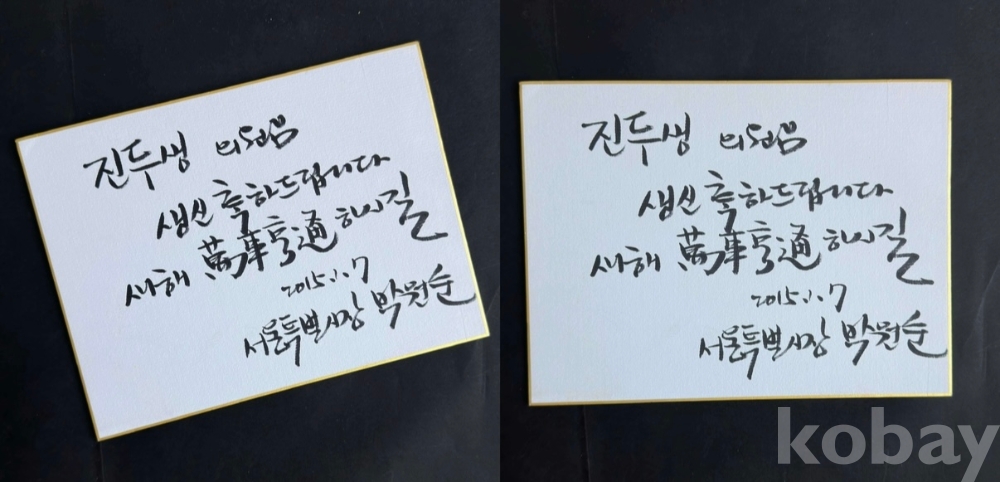 진두생 의원님
생신 축하드립니다
새해 萬事亨通 하시길
2015.1.7
서울특별시장 박원순
진두생 의원님
생신 축하드립니다
새해 萬事亨通 하시길
2015.1.7
서울특별시장 박원순
kobay